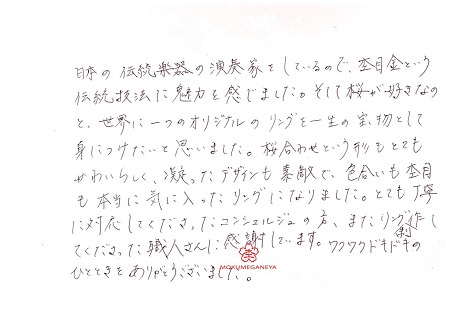 日本の伝統楽器の演奏家をしているので、杢目金という
伝統技法に魅力を感じました。そして桜が好きなの
と、世界に一つのオリジナルのリングを一生の宝物として
身につけたいと思いました。桜合わせという形もとても
かわいらしく、凝ったデザインも素敵で、色合いも杢目
も本当に気に入ったリングになりました。とても丁寧
に対応してくださったコンシェルジュの方、またリング制作して
くださった職人さんに感謝しています。ワクワクドキドキの
ひとときをありがとうございました。
MOKUMEGANEYA